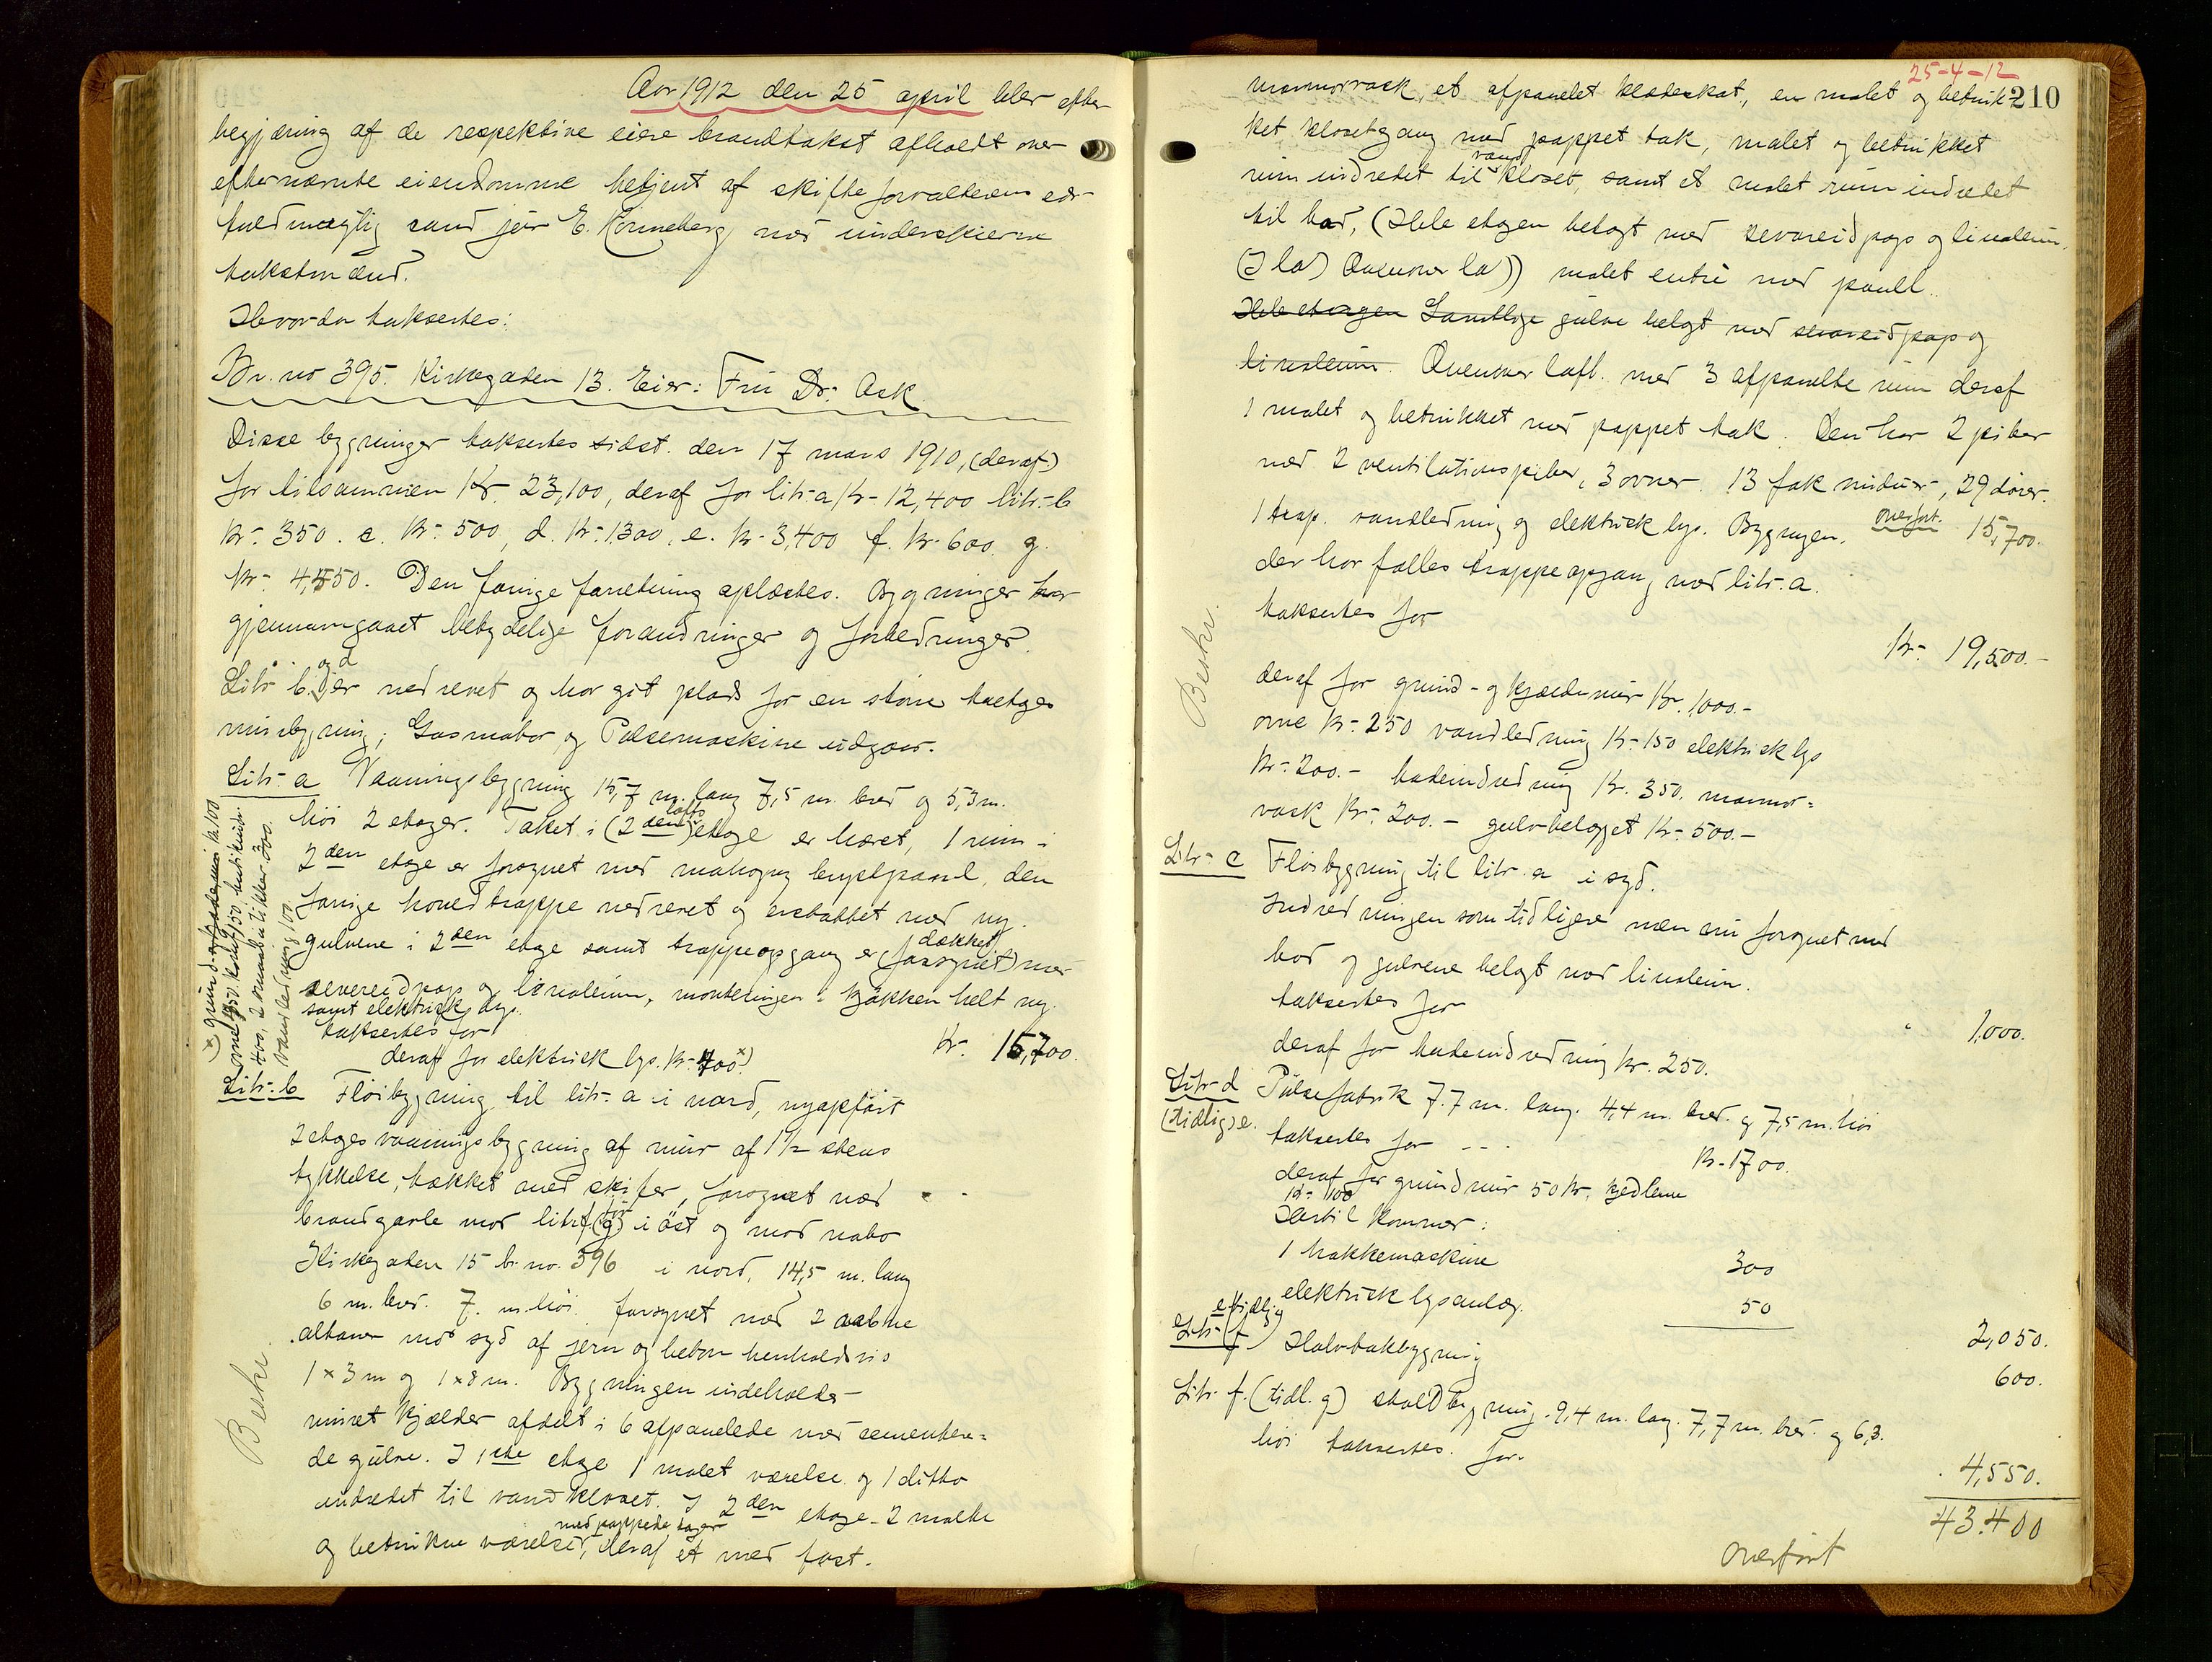 Aar 1912 den 25 april blev efter
begjæring af de respektive eiere brandtakst afholdt over
efternævnte eiendomme betjent af skifteforvalterens edr
fuldmægtig cand jur E. Konneberg med underskrevne
takstmænd.
Hvorda taksertes:
Br. no 395. Kirkegaden 13. Eier: Fru Dr: Ask
Disse bygninger taksertes sidst den 17 mars 1910, (deraf)
for tilsammen Kr 23,100, deraf for litr. a Kr- 12,400 litr. b
Kr- 350. c. Kr- 500, d. Kr- 1300, e. Kr- 3,400 f. Kr- 600. g.
Kr- 4,550. Den forrige forretning oplæstes. Bygninger har
gjennemgaaet betydelige forandringer og forbedringer.
og d
Litr b. er nedrevet og har git plads for en større toetages
mursbygning; Gasmotor og Pølsemaskine udgaar.
Litr- a Vaaningsbygning 15,7 m. lang 7,5 m. bred og 5,3 m.
lofts
høi 2 etager. Taket i (2 den) etage er hævet, 1 rum i
2 den etage er forsynet med mahogny brystpanel, den
forrige hovedtrappe nedrevet og erstattet med ny.
dækket
gulvene i 2 den etage samt trappeopgang er (forsynet) med
severeidpap og linoleum, monteringen i kjøkken helt ny.
samt elektrisk lys.
taksertes for Kr. 15,700.
deraf for elektrisk lys. Kr- 400 x)
x) grund- og
400, 2
vandledning 100.
Litr- b Fløibygning til litr- a i nord, nyopført
2 etages vaaningsbygning af mur af 1½ stens
tykkelse, tækket med skifer, forsynet med
brandgavle mod litr f (g) i øst og mod nabo
Kirkegaden 15 br. no. 396 i nord, 14,5 m. lang
6 m. bred. 7. m. høi. forsynet med 2 aabne
altaner mod syd af jern og beton henholdsvis
1 x 3 m og 1 x 8 m. Bygningen indeholder
muret kjælder afdelt i 6 afpanelede med cementere=
de gulve. I 1ste etage 1 malet værelse og 1 ditto
indredet til vandkloset. I 2 den etage 2 malte
med pappede tager
og betrukne værelser, deraf et med fast.
Beskr.
25-4-12
210
marmorvask, et afpanelet klædeskat, en malet og betruk-
ket klosetgang med pappet tak, malet og betrukket
vand
rum indredet til kloset, samt et malet rum indredet
til bad, (Hele etagen belagt med severeidpap og linoleum.
(I la) Ovenover la)) malet entré med panel.
Hele etagen Samtlige gulve belagt med severeidpap og
linoleum. Ovenover loft. med 3 afpanelte rum deraf
1 malet og betrukket med pappet tak. Den har 2 piber
med 2 ventilationspiber, 3 ovner. 13 fak vinduer, 29 dører.
1 trap. vandledning og elektrisk lys. Bygningen, overført. 15,700.
der har fælles trappeopgang med litr. a.
taksertes for
Kr- 19,500.-
Beskr.
deraf for grund- og kjældermur Kr. 1000.-
ovne Kr- 250 vandledning Kr- 150 elektrisk lys
Kr- 200.- badeindredning Kr. 350. marmor=
vask Kr- 200.- gulvbelægget Kr- 500.-
Litr- c Fløibygning til litr. a i syd.
Indredningen som tidligere men nu forsynet med
bad og gulvene belagt med linoleum.
taksertes for 1,000.
deraf for badeindredning Kr. 250.
Litr- d Pølsefabrik 7.7 m. lang. 4,4 m. bred. og 7,5 m. høi
(tidlig) e.
taksertes for - - - Kr- 1700.
deraf for grundmur 50 Kr. kjedlene
Kr- 100
Hertil kommer:
1 hakkemaskine 300
elektrisk lysanlæg. 50
2,050.
e tidlig
Litr- (f) Halvtakbygning 600.
Litr. f. (tidl. g) staldbygning. 9,4 m. lang. 7,7 m. bred. og 6,3.
høi taksertes. for. 4,550.
43.400
overført